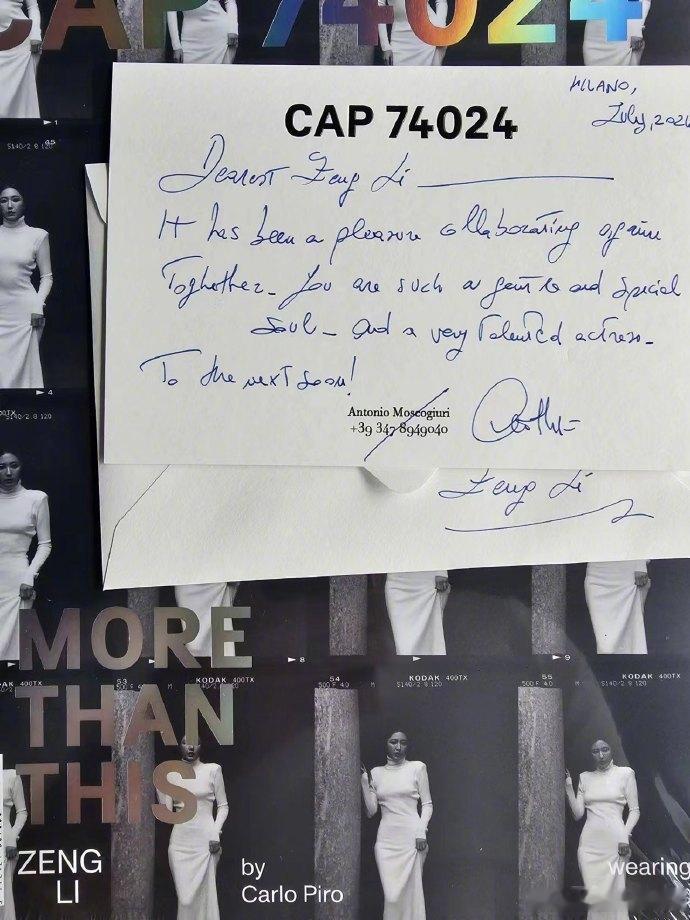 CAP 74024
MILANO,
July, 202
CAP 74024
Dearest Zeng Li
It has been a pleasure collaborating again
Toghether_ You are such a gentle and special
soul_ and a very Talented actress_
To the next soon!
Antonio Moscogiuri
+39 347 8949040
Zeng Li
MORE
THAN
THIS
53
KODAK 400TX
54
KODAK 400TX
55
KODAK 400TX
ZENG
LI
by
Carlo Piro
wearing